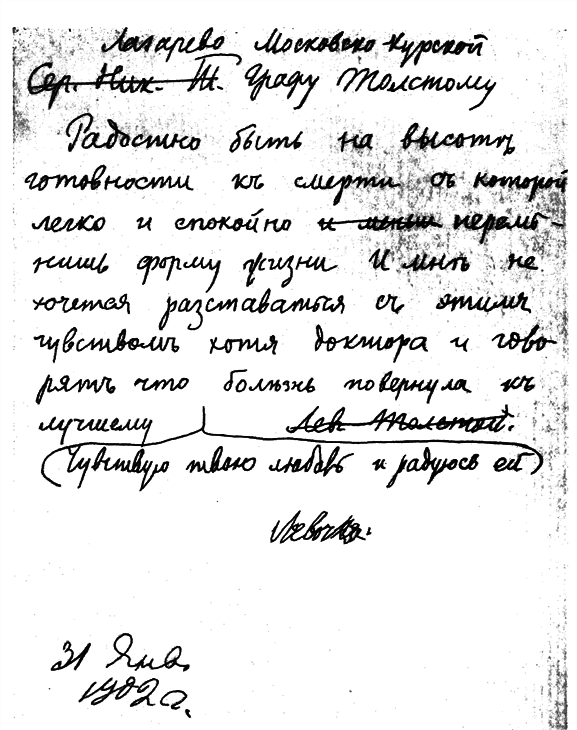 Лазарево Московско-Курской
Сер. Ник. Т. Графу Толстому
Радостно быть на высотѣ
готовности къ смерти съ которой
легко и спокойно и мѣняя перемѣ-
нишь форму жизни И мнѣ не
хочется разставаться съ этимъ
чувствомъ хотя доктора и гово-
рятъ что болѣзнь повернула къ
лучшему Лев Толстой.
(Чувствую твою любовь и радуюсь ей)
Левочка.
31 Янв.
1902 г.